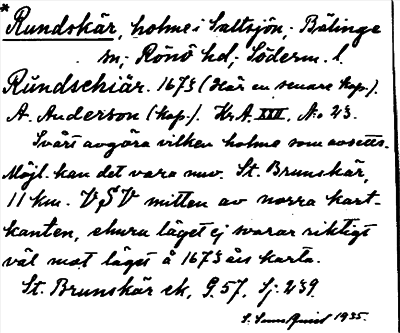 * Rundskär, holme i Saltsjön, Bälinge
sn, Rönö hd, Söderm. l.
Rundschiär. 1673 (Här en senare kop.).
A. Anderson (kop.). Kr.A. XXII. No 23.
Svårt avgöra vilken holme som avsetts.
Möjl. kan det vara nuv. St. Brunskär,
11 km. VSV mitten av norra kart-
kanten, ehuru läget ej svarar riktigt
väl mot läget å 1673 års karta.
St. Brunskär ek. G. 57, Sj. 239
1935.